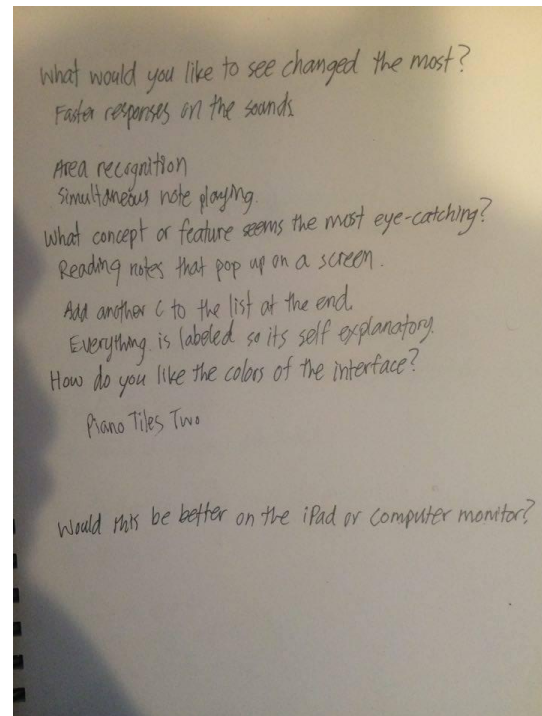 What would you like to see changed the most?
Faster responses on the sounds
Area recognition
Simultaneous note playing.
What concept or feature seems the most eye-catching?
Reading notes that pop up on a screen.
Add another C to the list at the end.
Everything is labeled so its self explanatory.
How do you like the colors of the interface?
Piano Tiles Two
Would this be better on the iPad or computer monitor?